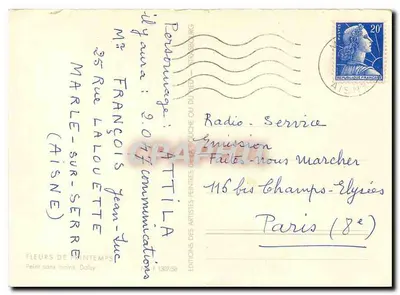 Personnage : ATTILA
il y aura : 2.077 communications
Mr FRANÇOIS Jean-Luc
25 Rue LALOUETTE
MARLE-SUR-SERRE
(AISNE)
FLEURS DE PRINTEMPS
20F
Radio - Service
Emission
Faites-nous Marcher
116 bis Champs-Elysées
Paris (8e)